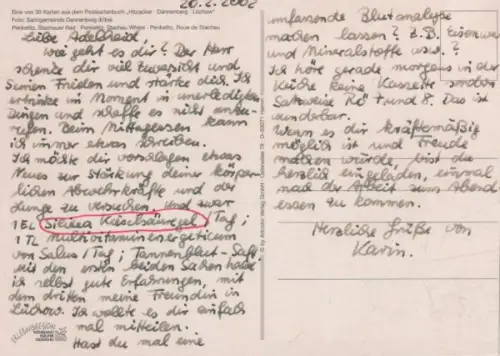 20.2.2002
Eine von 30 Karten aus dem Postkartenbuch „Hitzacker · Dannenberg · Lüchow“
Foto: Samtgemeinde Dannenberg (Elbe)
Penkefitz, Stachauer Rad · Penkefitz, Stachau Wheel · Penkefitz, Roue de Stachau
Liebe Adelheid,
wie geht es dir? Der Herr
schenke dir viel Zuversicht und
Seinen Frieden und stärke dich. Ich
ertrinke im Moment in unerledigten
Dingen und schaffe es nicht anzu-
rufen. Beim Mittagessen kann
ich immer etwas schreiben.
Ich möchte dir vorschlagen, etwas
Neues zur Stärkung deiner körper-
lichen Abwehrkräfte und der
Lunge zu versuchen, und zwar
1 EL Silicea Kieselsäuregel / Tag;
1 TL Multivitamin energeticum
von Salus / Tag; Tannenblut-Saft.
Mit den ersten beiden Sachen habe
ich selbst gute Erfahrungen, mit
dem dritten meine Freundin in
Lüchow. Ich wollte es dir einfach
mal mitteilen.
Hast du mal eine
umfassende Blutanalyse
machen lassen? z.B. Eisenwerte
und Mineralstoffe usw.?
Ich höre gerade morgens in der
Küche deine Kassette
Rö 7 und 8. Das ist
wunderbar.
Wenn es dir kräftemäßig
möglich ist und Freude
machen würde, bist du
herzlich eingeladen, einmal
nach der Arbeit zum Abend-
essen zu kommen.
Herzliche Grüße von
Karin.